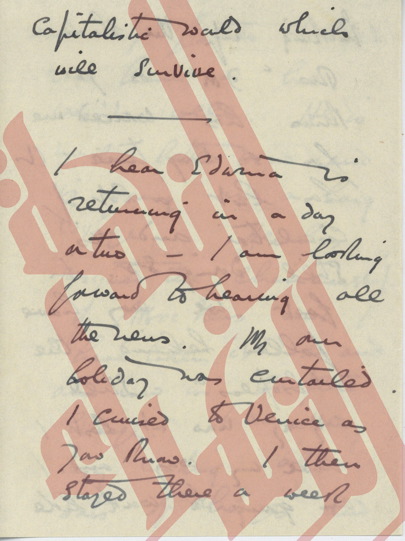 Capitalistic world which
will survive.
I hear Edwina is
returning in a day
or two – I am looking
forward to hearing all
the news. My own
holiday was curtailed.
I cruised to Venice as
you know. I then
stayed there a week